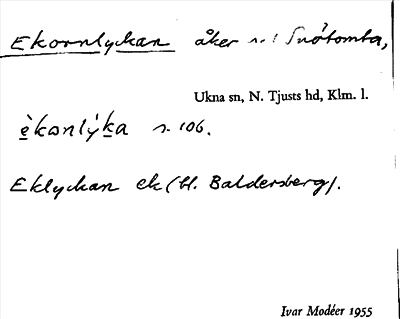 Ekornlyckan åker n.! Snötomta,
Ukna sn, N. Tjusts hd, Klm. l.
è̱kɷnlýḵa n. 106.
Eklyckan ek (bl. Baldersberg).
Ivar Modéer 1955